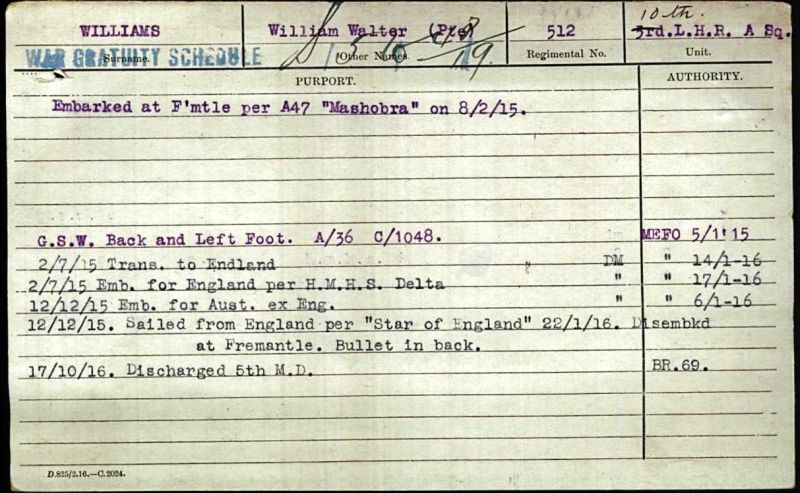 WILLIAMS William Walter (Pte) 512 10th.
3rd.L.H.R. A Sq.
WAR GRATUITY SCHEDULE
Surname. Other Names. Regimental No. Unit.
PURPORT. AUTHORITY.
Embarked at F'mtle per A47 "Mashobra" on 8/2/15.
G.S.W. Back and Left Foot. A/36 C/1048. MEFO 5/1'15
2/7/15 Trans. to Endland " DM " 14/1-16
2/7/15 Emb. for England per H.M.H.S. Delta " " 17/1-16
12/12/15 Emb. for Aust. ex Eng. " " 6/1-16
12/12/15. Sailed from England per "Star of England" 22/1/16. Disembkd
at Fremantle. Bullet in back.
17/10/16. Discharged 5th M.D. BR.69.
D.825/2.16.—C.2024.